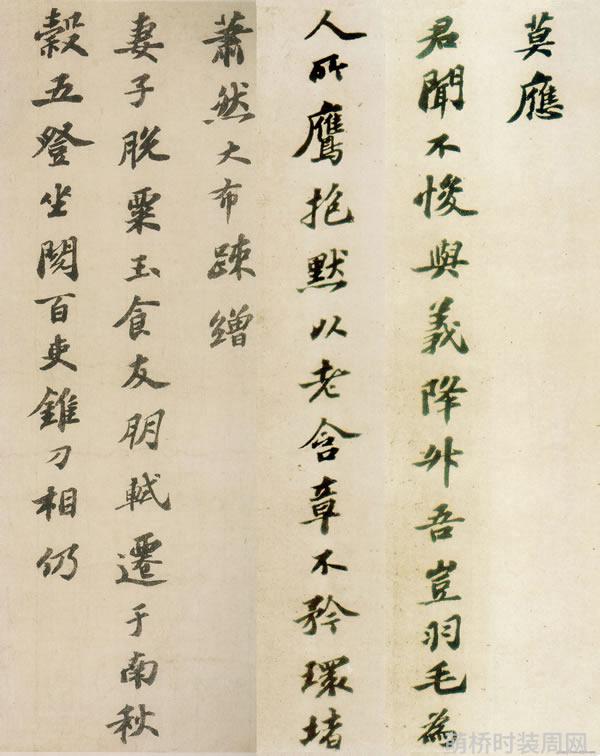 莫應
君聞不悛與義降升吾豈羽毛為
人所鷹抱默以老含章不矜環堵
蕭然大布踈繒
妻子脱粟玉食友朋軾遷于南秋
穀五登坐閱百吏錐刀相仍
萌桥时装周网